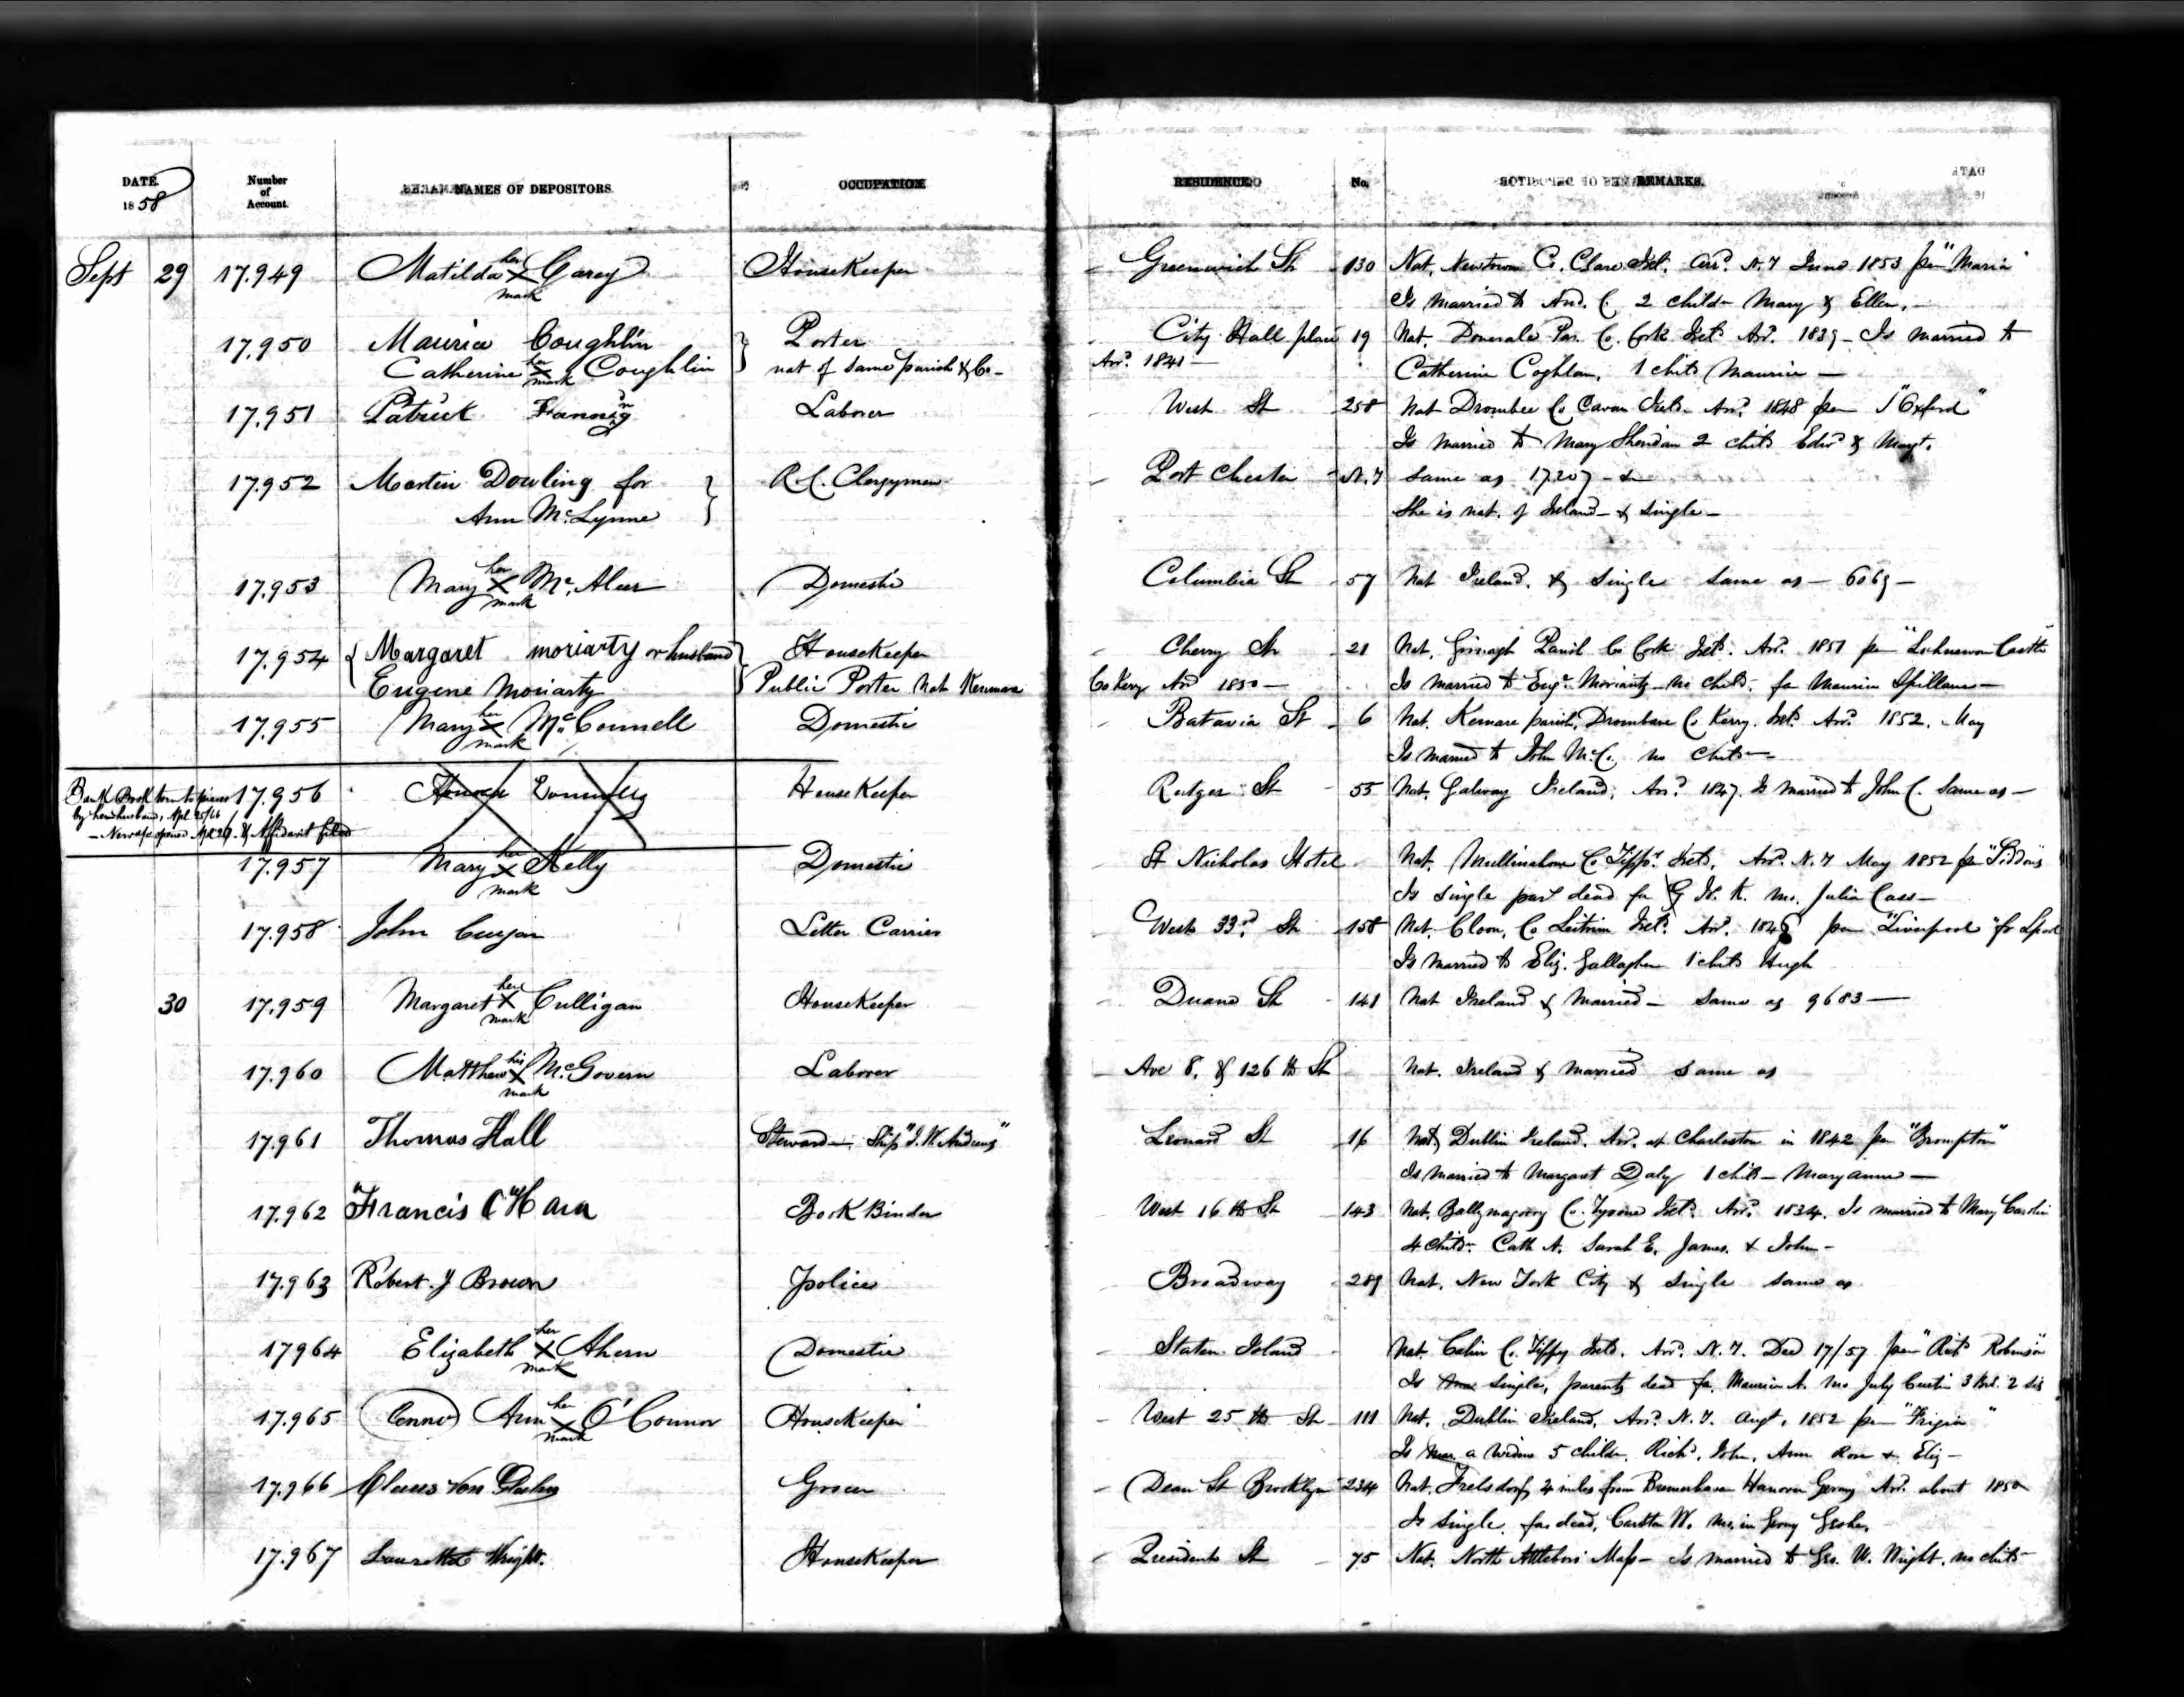 DATE. Number of Account. NAMES OF DEPOSITORS. OCCUPATION RESIDENCE No. REMARKS.
1858
Sept 29 17.949 Matilda her X mark Carey Housekeeper Greenwich St 130 Nat. Newtown Co. Clare Ird. arr. N.Y June 1853 per "Maria"
Is married to And. C. 2 childn Mary & Ellen.
17.950 Maurice Coughlin Porter City Hall place 19 Nat. Par. Co. Cork Ird. Arr. 1839 - Is married to
Catherine her X mark Coughlin nat of same parish & Co - Arrd. 1841 - Catherine Coghlan, 1 child Maurice -
17.951 Patrick Fannin Laborer West St 258 Nat Drombee Co Cavan Ird. Arrd. 1848 per "Oxford"
Is married to Mary Sheridan 2 childn Edwd & Margt.
17.952 Martin Dowling for R. C. Clergyman Port Chester N.Y same as 17207 -
Ann McLynne She is nat. of Ireland - & single -
17.953 Mary her X mark McAleer Domestic Columbia St 57 Nat Ireland. & single same as - 6069 -
17.954 Margaret moriarty or husband Housekeeper Cherry St 21 Nat. Parish Co Cork Ird. Arr. 1851 per
Eugene Moriarty Public Porter Nat Kenmare Co Kerry Arrd 1850 - Is married to Eug. Moriarty no child. fa Maurice Spillane -
17.955 Mary her X mark McConnell Domestic Batavia St 6 Nat. Kenmare parish, Co Kerry. Ird. Arrd. 1852. May
Is married to John McC. no child -
Bank Book torn to pieces 17.956 Honora Donnelly Housekeeper Rutger St 55 Nat. Galway Ireland, Arr. 1847. Is married to John C. Same as -
by her husband, Apl 25/66
- New a/c opened Apl 29 & Affidavit filed
17.957 Mary her X mark Kelly Domestic St Nicholas Hotel Nat. Mullinahone Co Tippy. Ird. Arrd. N.Y May 1852 per "Siddons"
Is single part dead fa K. mo. Julia Cass -
17.958 John Letter Carrier West 33rd St 158 Nat. Cloon, Co Leitrim Ird. Arrd. per "Liverpool" fr Lpool
Is married to Eliz. Gallagher 1 child Hugh
30 17.959 Margaret her X mark Culligan Housekeeper Duane St 141 Nat Ireland & Married - same as 9683 -
17.960 Matthew his X mark McGovern Laborer Ave 8. & 126th St Nat. Ireland & married same as
17.961 Thomas Hall Steward - Ship "J. W. Andrews" Leonard St 16 Nat. Dublin Ireland. Arr. at Charleston in 1842 per "Brompton"
Is married to Margaret Daly 1 child - Maryanne -
17.962 Francis O'Hara Book Binder West 16th St 143 Nat. Co. Tyrone Ird. Arr. 1834. Is married to Mary
4 childn. Cath A. Sarah E. James. & John -
17.963 Robert J Brown police Broadway 289 Nat. New York City & single same as
17964 Elizabeth her X mark Ahern Domestic Staten Island Nat. Cahir Co. Tippy Ird. Arr. N.Y. Dec 17/57 per "Robinson"
Is single, parents dead fa. Maurice A. mo July Curtin 3 Bro. 2 sis
17.965 (Conno) Ann her X mark O'Connor Housekeeper West 25th St 111 Nat. Dublin Ireland, Arrd. N.Y. Augt. 1852 per
Is a widow 5 childn. Richd. John, Ann Rose & Eliz -
17.966 Claus Von Grocer Dean St Brooklyn 234 Nat. Frelsdorf, 4 miles from Bremerhaven Hanover Germy Arrd. about 1850
Is single. fa dead, Carsten W. mo. in Germy
17.967 Lauretta Wright. Housekeeper President St 75 Nat. North Attleboro Mass - Is married to Geo. W. Wright. no child -